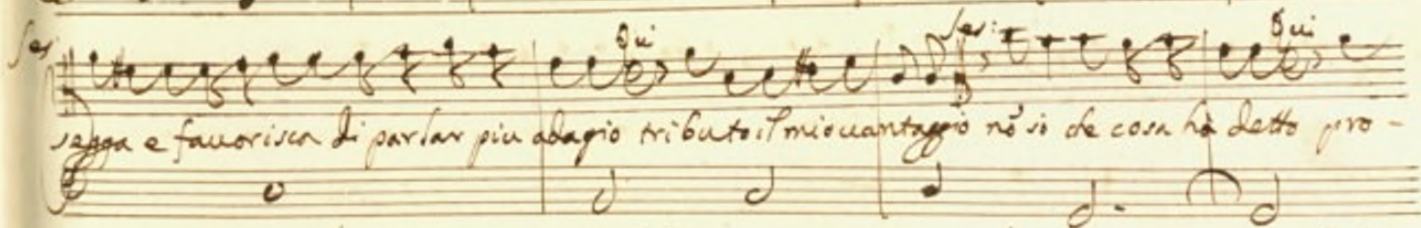 Ser: Qui Ser: Qui
segga e fauorisca di parlar piu adagio tributo il mio uantaggio nõ sò che cosa hà detto pro-